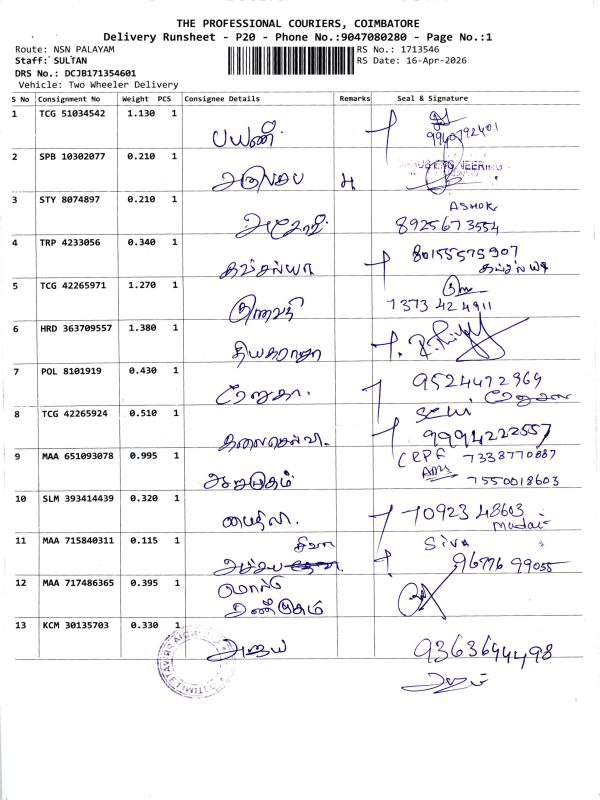 THE PROFESSIONAL COURIERS, COIMBATORE
Delivery Runsheet - P20 - Phone No.:9047080280 - Page No.:1
Route: NSN PALAYAM
Staff: SULTAN
DRS No.: DCJB171354601
Vehicle: Two Wheeler Delivery
RS No.: 1713546
RS Date: 16-Apr-2026
S No Consignment No Weight PCS Consignee Details Remarks Seal & Signature
1 TCG 51034542 1.130 1 பயணி 9940792401
2 SPB 10302077 0.210 1
3 STY 8074897 0.210 1 ASHOK
8925673554
4 TRP 4233056 0.340 1 80155575907
5 TCG 42265971 1.270 1 7373424911
6 HRD 363709557 1.380 1 தியாகராஜா
7 POL 8101919 0.430 1 ரேணுகா. 9524472969
8 TCG 42265924 0.510 1 கலைசெல்வி. Selvi
9994222557
9 MAA 651093078 0.995 1 ஆறுமுகம் CRPF 7338770887
7550018603
10 SLM 393414439 0.320 1 70923 48603
11 MAA 715840311 0.115 1 சிவா Siva
96776 99055
12 MAA 717486365 0.395 1 சண்முகம்
13 KCM 30135703 0.330 1 அஜய் 9363694498